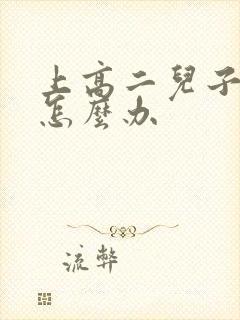 上高二兒子
怎麼办
流弊